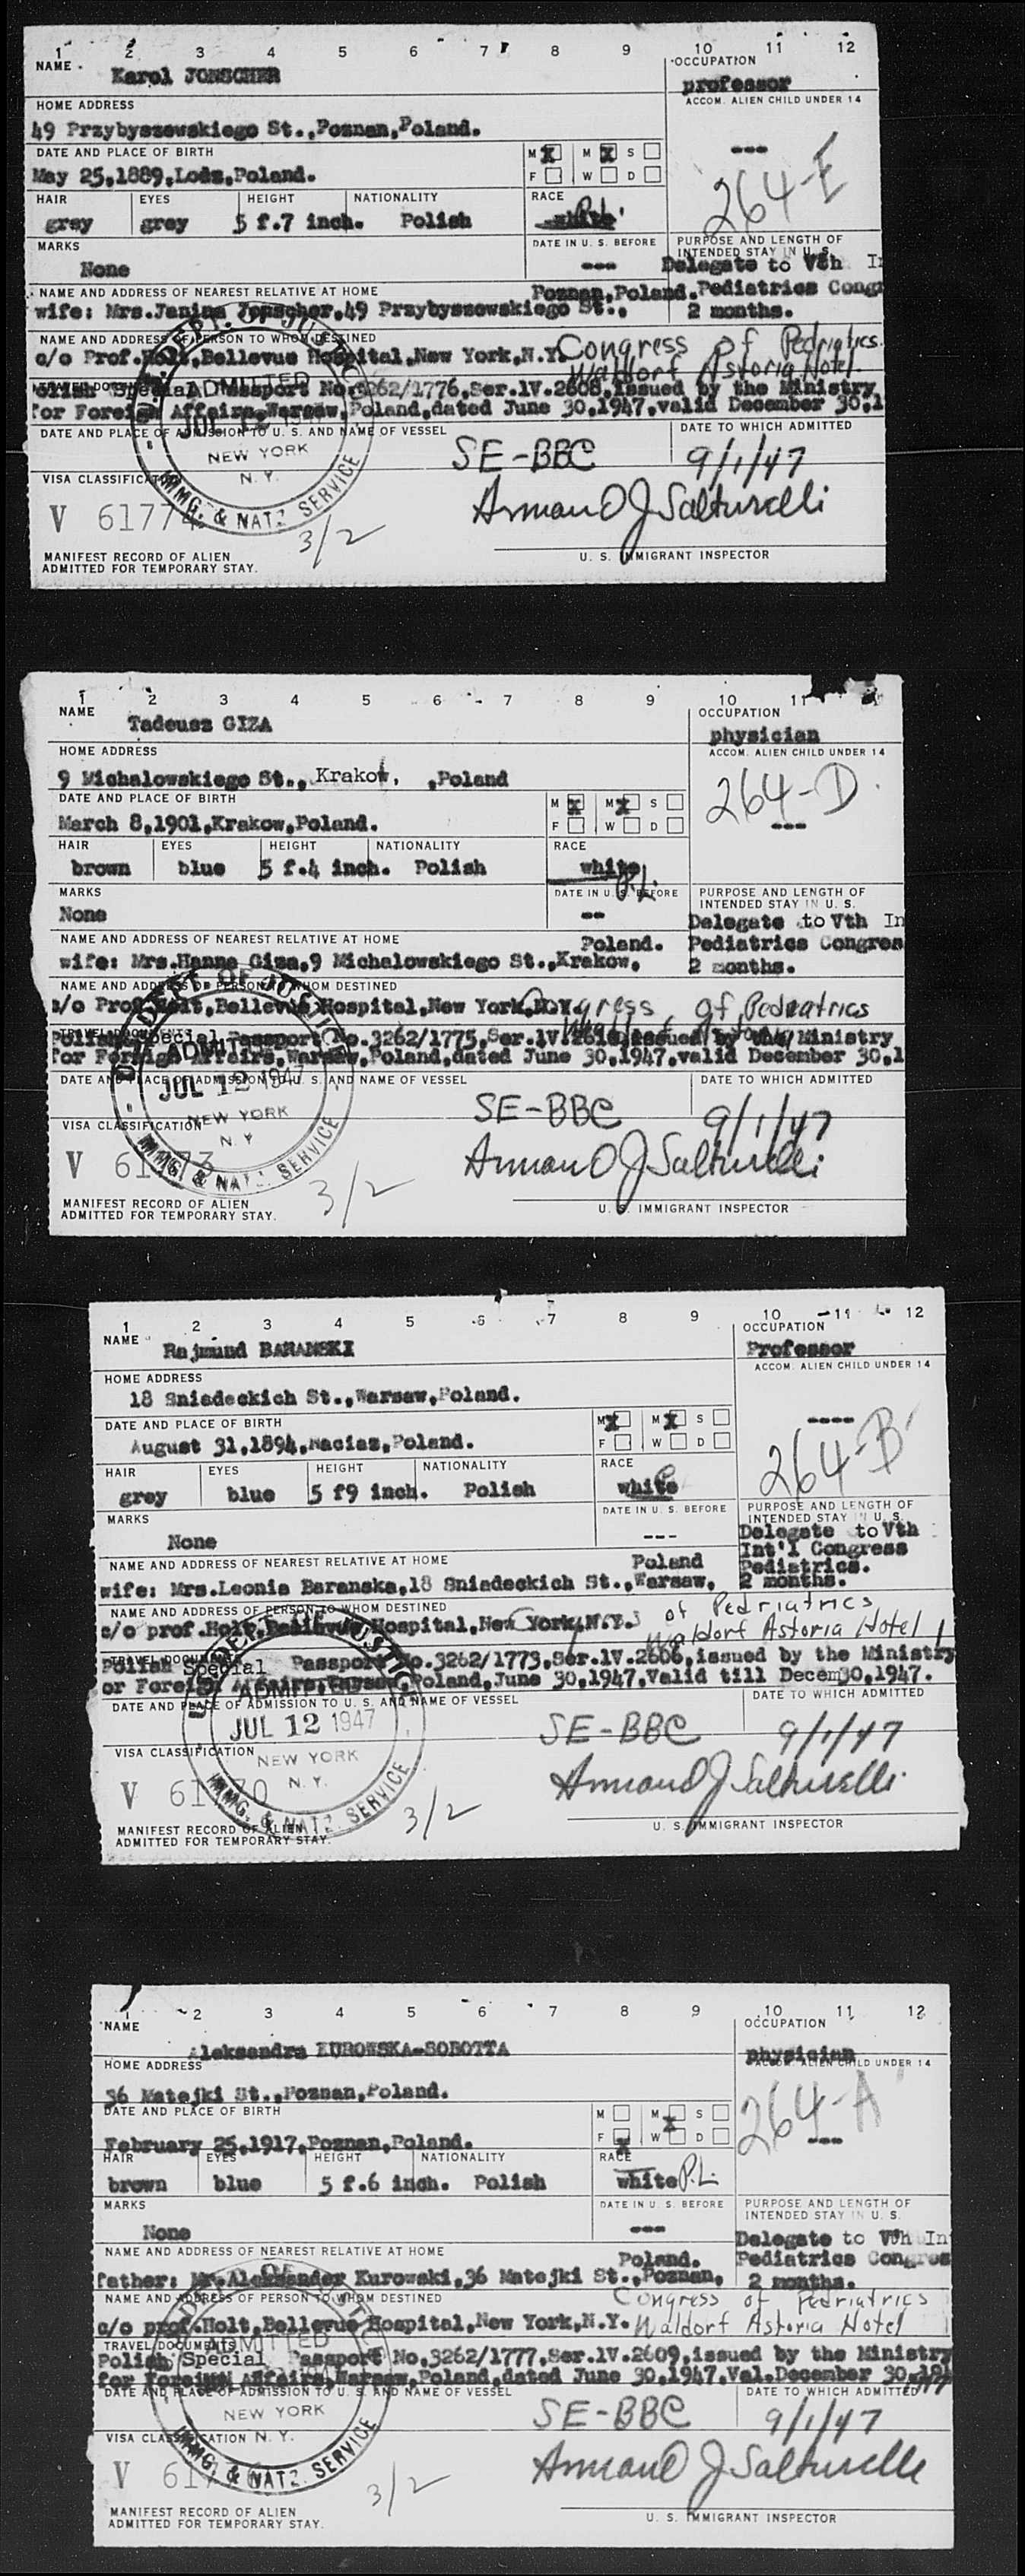 1 2 3 4 5 6 7 8 9 10 11 12
NAME OCCUPATION
Karol JONSCHER professor
HOME ADDRESS ACCOM. ALIEN CHILD UNDER 14
49 Przybyszewskiego St.,Poznan,Poland.
DATE AND PLACE OF BIRTH M X M X S ---
May 25,1889,Lodz,Poland. F W D 264-E
HAIR EYES HEIGHT NATIONALITY RACE
grey grey 5 f.7 inch. Polish white P.L.
MARKS DATE IN U. S. BEFORE PURPOSE AND LENGTH OF INTENDED STAY IN U. S.
None --- Delegate to Vth In
NAME AND ADDRESS OF NEAREST RELATIVE AT HOME Poznan,Poland. Pediatrics Cong
wife: Mrs.Janina Jonscher,49 Przybyszewskiego St., 2 months.
NAME AND ADDRESS OF PERSON TO WHOM DESTINED Congress of Pedriatics.
c/o Prof.Holt,Bellevue Hospital,New York,N.Y. Waldorf Astoria Hotel.
Special Passport No.3262/1776,Ser.1V.2608,issued by the Ministry
for Foreign Affairs,Warsaw,Poland,dated June 30,1947,valid December 30,1
DATE AND PLACE OF ADMISSION TO U. S. AND NAME OF VESSEL DATE TO WHICH ADMITTED
DEPT. OF JUSTICE
ADMITTED
JUL 12 1947
NEW YORK
N. Y.
IMMG. & NATZ. SERVICE
SE-BBC 9/1/47
VISA CLASSIFICATION
V 6177 Armand J Salturelli
3/2
MANIFEST RECORD OF ALIEN U. S. IMMIGRANT INSPECTOR
ADMITTED FOR TEMPORARY STAY.
1 2 3 4 5 6 7 8 9 10 11
NAME OCCUPATION
Tadeusz GIZA physician
HOME ADDRESS ACCOM. ALIEN CHILD UNDER 14
9 Michalowskiego St., Krakow, ,Poland 264-D
DATE AND PLACE OF BIRTH M X M X S ---
March 8,1901,Krakow,Poland. F W D
HAIR EYES HEIGHT NATIONALITY RACE
brown blue 5 f.4 inch. Polish white P.L.
MARKS DATE IN U. S. BEFORE PURPOSE AND LENGTH OF INTENDED STAY IN U. S.
None -- Delegate to Vth In
NAME AND ADDRESS OF NEAREST RELATIVE AT HOME Poland. Pediatrics Congres
wife: Mrs.Hanna Giza,9 Michalowskiego St.,Krakow, 2 months.
NAME AND ADDRESS OF PERSON TO WHOM DESTINED
c/o Prof.Holt,Bellevue Hospital,New York,N.Y. Congress of Pedeatrics
TRAVEL DOCUMENTS
Polish Special Passport No.3262/1775,Ser.1V.2610,issued by the Ministry
for Foreign Affairs,Warsaw,Poland,dated June 30,1947,valid December 30,1
DATE AND PLACE OF ADMISSION TO U. S. AND NAME OF VESSEL DATE TO WHICH ADMITTED
DEPT OF JUSTICE
ADMITTED
JUL 12 1947
NEW YORK
N. Y
IMMG. & NATZ. SERVICE
SE-BBC 9/1/47
VISA CLASSIFICATION
V 61773 Armand J Salturelli
3/2
MANIFEST RECORD OF ALIEN U. S. IMMIGRANT INSPECTOR
ADMITTED FOR TEMPORARY STAY.
1 2 3 4 5 6 7 8 9 10 11 12
NAME OCCUPATION
Rajmund BARANSKI Professor
HOME ADDRESS ACCOM. ALIEN CHILD UNDER 14
18 Sniadeckich St.,Warsaw,Poland.
DATE AND PLACE OF BIRTH M X M X S ----
August 31,1894,Maciaz,Poland. F W D 264-B
HAIR EYES HEIGHT NATIONALITY RACE
grey blue 5 f9 inch. Polish white
MARKS DATE IN U. S. BEFORE PURPOSE AND LENGTH OF INTENDED STAY IN U. S.
None --- Delegate to Vth
Int'l Congress
NAME AND ADDRESS OF NEAREST RELATIVE AT HOME Poland Pediatrics.
wife: Mrs.Leonia Baranska,18 Sniadeckich St.,Warsaw, 2 months.
NAME AND ADDRESS OF PERSON TO WHOM DESTINED of Pedriatrics
c/o prof.Holt,Bellevue Hospital,New York,N.Y. Waldorf Astoria Hotel
TRAVEL DOCUMENTS
Polish Special Passport No.3262/1773,Ser.1V.2606,issued by the Ministry
or Foreign Affairs,Warsaw,Poland,June 30,1947,Valid till Decem30,1947.
DATE AND PLACE OF ADMISSION TO U. S. AND NAME OF VESSEL DATE TO WHICH ADMITTED
ADMITTED
JUL 12 1947
NEW YORK
N. Y.
IMMG. & NATZ. SERVICE
SE-BBC 9/1/47
VISA CLASSIFICATION
V 61770 Armand J Salturelli
3/2
MANIFEST RECORD OF ALIEN U. S. IMMIGRANT INSPECTOR
ADMITTED FOR TEMPORARY STAY.
1 2 3 4 5 6 7 8 9 10 11 12
NAME OCCUPATION
Aleksandra KUROWSKA-SOBOTTA physician
HOME ADDRESS ACCOM. ALIEN CHILD UNDER 14
36 Matejki St.,Poznan,Poland. 264-A
DATE AND PLACE OF BIRTH M M X S
February 25,1917,Poznan,Poland. F X W D ---
HAIR EYES HEIGHT NATIONALITY RACE
brown blue 5 f.6 inch. Polish white P.L.
MARKS DATE IN U. S. BEFORE PURPOSE AND LENGTH OF INTENDED STAY IN U. S.
None --- Delegate to Vth In
NAME AND ADDRESS OF NEAREST RELATIVE AT HOME Poland. Pediatrics Congres
father: Mr.Aleksander Kurowski,36 Matejki St.,Poznan, 2 months.
NAME AND ADDRESS OF PERSON TO WHOM DESTINED Congress of Pedriatrics
c/o prof.Holt,Bellevue Hospital,New York,N.Y. Waldorf Astoria Hotel
TRAVEL DOCUMENTS
Polish Special Passport No.3262/1777,Ser.1V.2609,issued by the Ministry
for Foreign Affairs,Warsaw,Poland,dated June 30,1947,Val.December 30,1947
DATE AND PLACE OF ADMISSION TO U. S. AND NAME OF VESSEL DATE TO WHICH ADMITTED
ADMITTED
NEW YORK
N. Y.
IMMG. & NATZ. SERVICE
SE-BBC 9/1/47
VISA CLASSIFICATION
V Armand J Salturelli
3/2
MANIFEST RECORD OF ALIEN U. S. IMMIGRANT INSPECTOR
ADMITTED FOR TEMPORARY STAY.